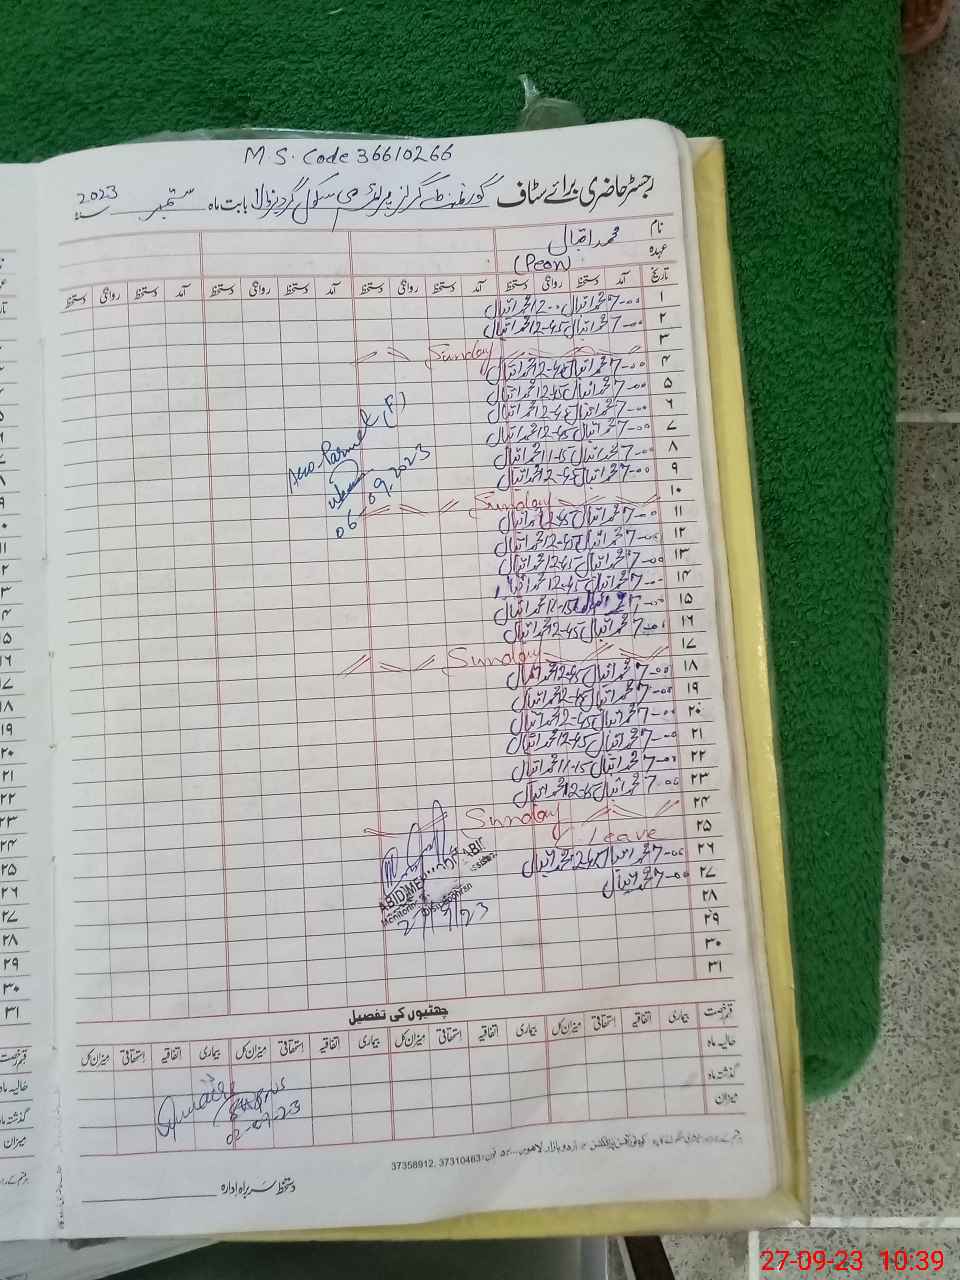 M S. Code 36610266
رجسٹر حاضری برائے سٹاف گورنمنٹ گرلز پرائمری سکول بابت ماہ ستمبر سنہ 2023
نام محمد اقبال
عہدہ (Peon)
تاریخ آمد دستخط روانگی دستخط آمد دستخط روانگی دستخط آمد دستخط روانگی دستخط آمد دستخط روانگی دستخط
۱ 7-00 محمد اقبال 12-00 محمد اقبال
۲ 7-00 محمد اقبال 12-45 محمد اقبال
۳ Sunday
۴ 7-00 محمد اقبال 12-45 محمد اقبال
۵ 7-00 محمد اقبال 12-45 محمد اقبال
۶ 7-00 محمد اقبال 12-45 محمد اقبال
۷ 7-00 محمد اقبال 12-45 محمد اقبال
۸ 7-00 محمد اقبال 11-15 محمد اقبال
۹ 7-00 محمد اقبال 12-45 محمد اقبال
۱۰ Sunday
۱۱ 7-00 محمد اقبال 12-45 محمد اقبال
۱۲ 7-00 محمد اقبال 12-45 محمد اقبال
۱۳ 7-00 محمد اقبال 12-45 محمد اقبال
۱۴ 7-00 محمد اقبال 12-45 محمد اقبال
۱۵ 7-00 محمد اقبال 11-15 محمد اقبال
۱۶ 7-00 محمد اقبال 12-45 محمد اقبال
۱۷ Sunday
۱۸ 7-00 محمد اقبال 12-45 محمد اقبال
۱۹ 7-00 محمد اقبال 12-45 محمد اقبال
۲۰ 7-00 محمد اقبال 12-45 محمد اقبال
۲۱ 7-00 محمد اقبال 12-45 محمد اقبال
۲۲ 7-00 محمد اقبال 11-15 محمد اقبال
۲۳ 7-00 محمد اقبال 12-45 محمد اقبال
۲۴ Sunday
۲۵ Leave
۲۶ 7-00 محمد اقبال 12-45 محمد اقبال
۲۷ 7-00 محمد اقبال
۲۸
۲۹
۳۰
۳۱
06.09.2023
ABID
27/9/23
چھٹیوں کی تفصیل
قسم رخصت بیماری اتفاقیہ استحقاقی میزان کل بیماری اتفاقیہ استحقاقی میزان کل بیماری اتفاقیہ استحقاقی میزان کل
حالیہ ماہ
گذشتہ ماہ
میزان
02-09-23
37358912, 37310463
دستخط سربراہ ادارہ
27-09-23 10:39